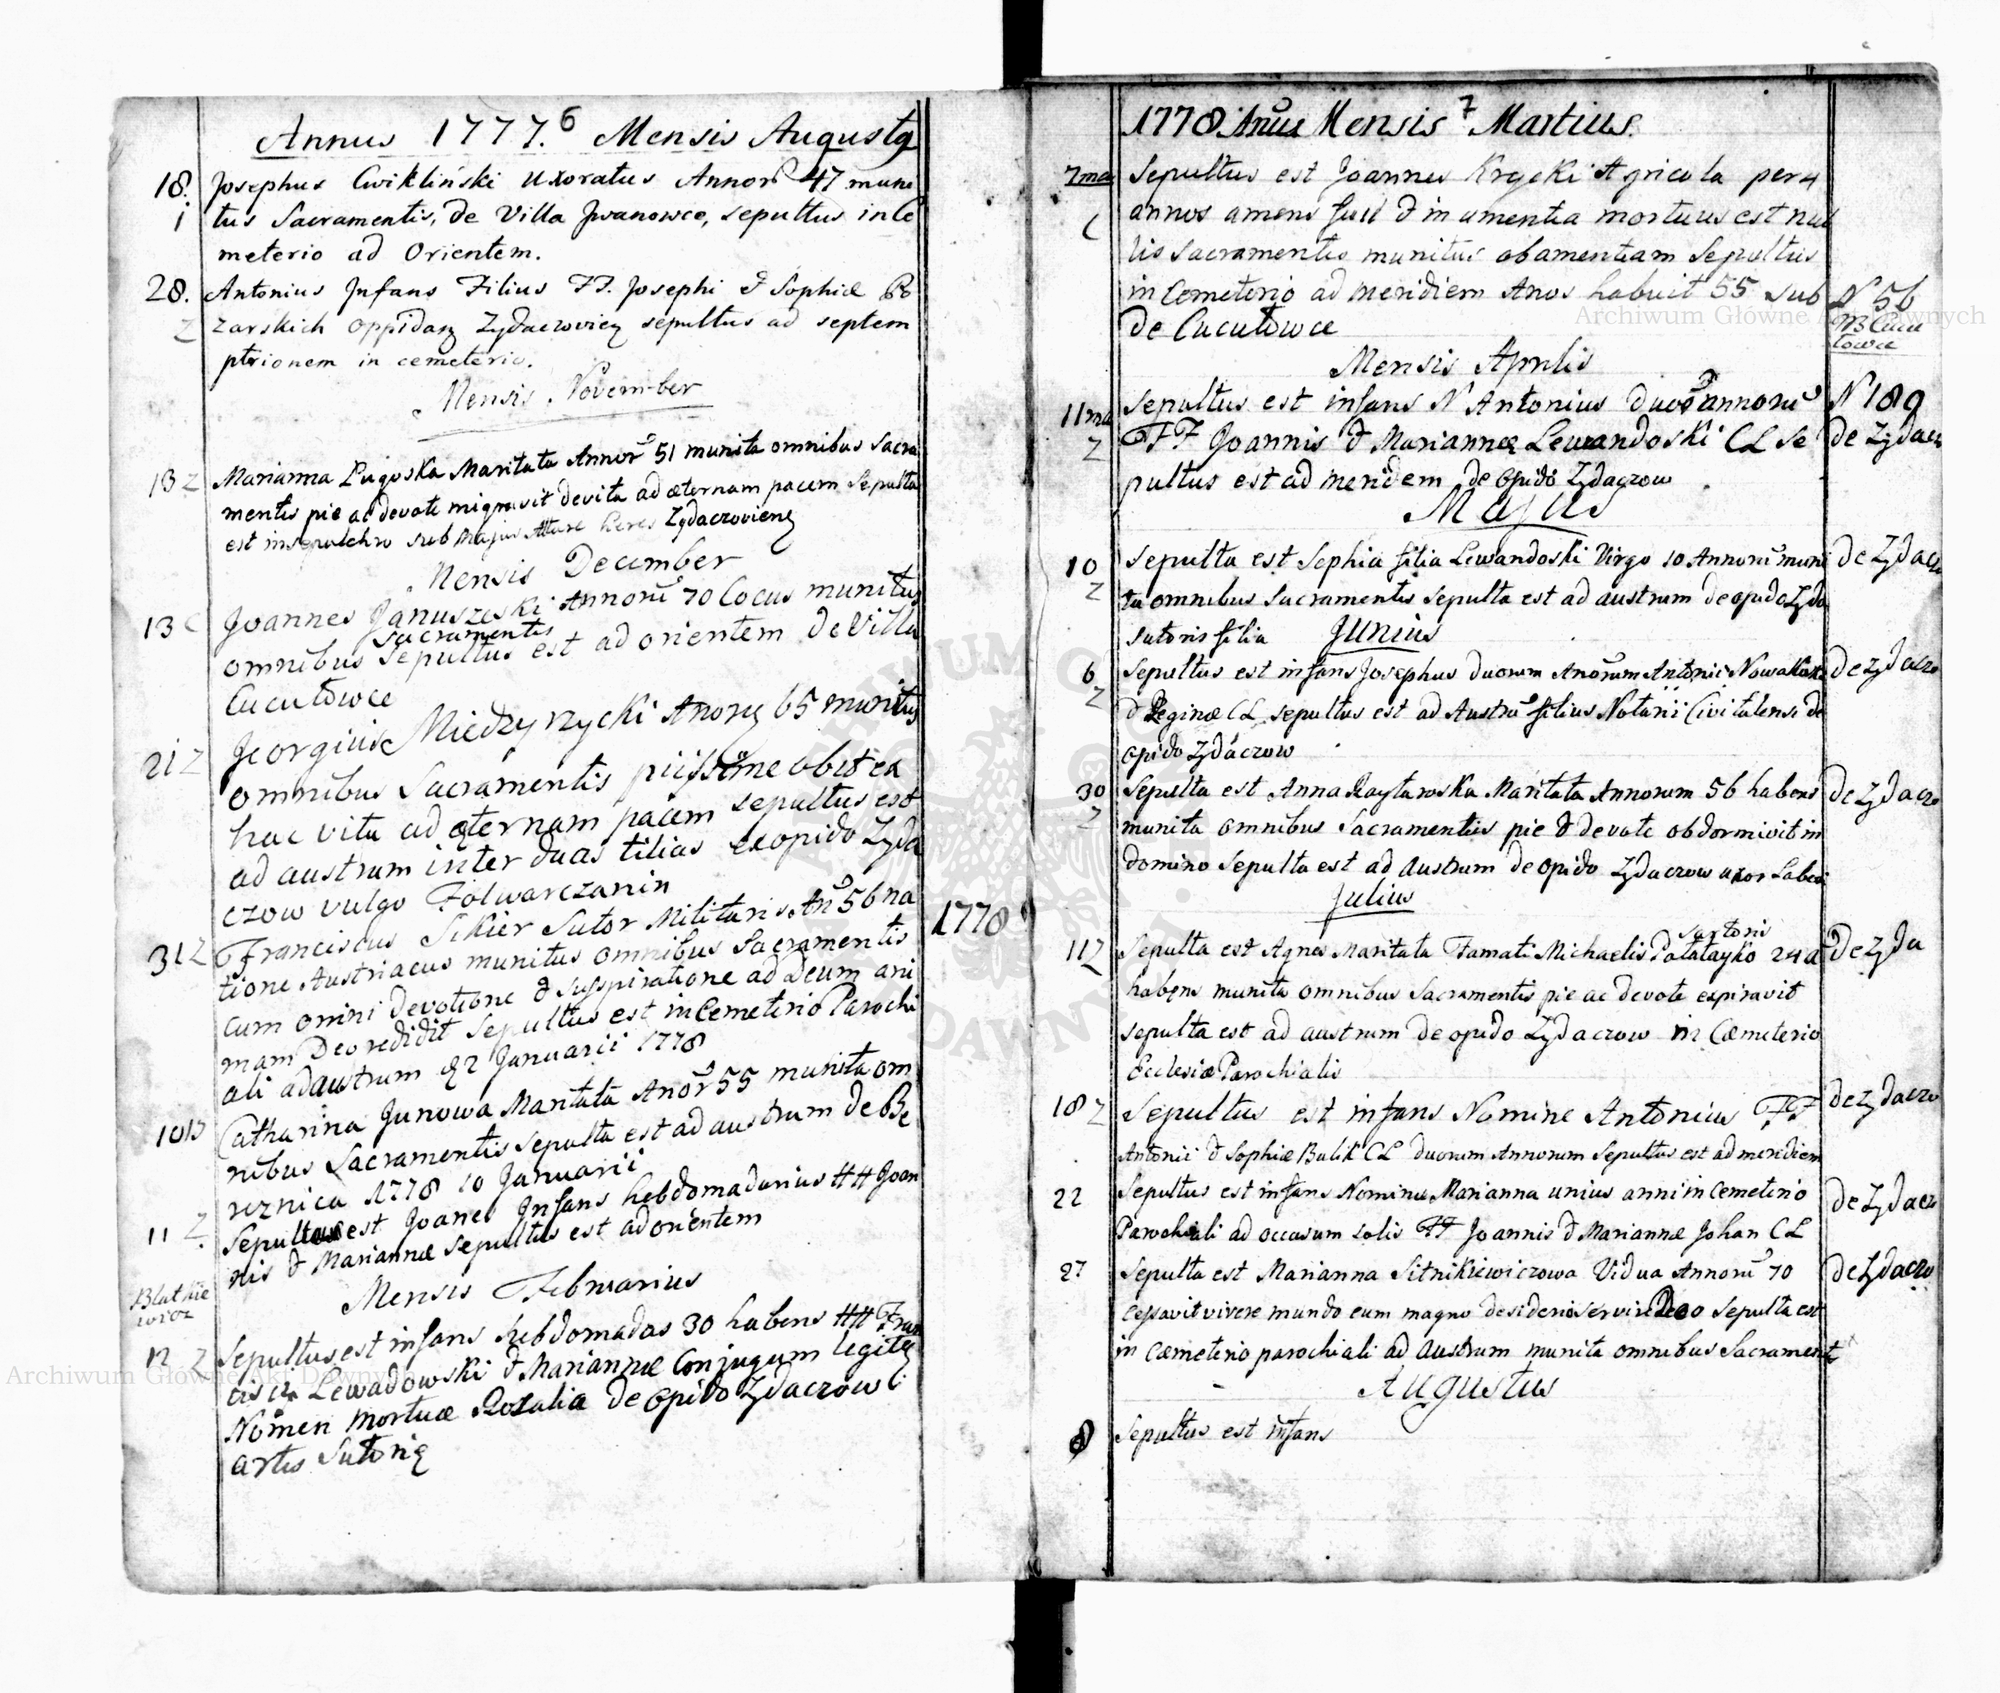 Annus 1777. 6 Mensis Augustq
18. Josephus Cwikliński uxoratus Annor 47 muni
1 tus Sacramentis, de Villa Jwanowce, sepultus in Ce
meterio ad Orientem.
28. Antonius Jnfans Filius FF. Josephi & Sophiæ Po
Z zarskich oppidaq Zydaczovieq sepultus ad septem
ptrionem in cemeterio.
Mensis November
13 Z Marianna Pugoska Maritata Annor 51 munita omnibus Sacra
mentis pie ac devote migravit devita ad æternam pacem Sepulta
est in sepulchro sub Majus Altare Zydaczovieng
Mensis December
13 C Joannes Januszeski Annorū 70 Cocus munitus
sacramentis
omnibus Sepultus est ad orientem de Villa
Cucułowce
21 Z Georgius Miedzyrzycki Anorq 65 munitus
omnibus Sacramentis piissime obiit ex
hac vita ad æternam pacem sepultus est
ad austrum inter duas tilias ex opido Zyda
czow vulgo Folwarczanin
31 Z Franciscus Sikier Sutor Militaris An 56 na
tione Austriacus munitus omnibus Sacramentis
1778
cum omni devotione & suspiratione ad Deum ani
mam Deo redidit Sepultus est in Cemeterio Parochi
ali ad austrum 2 Januarii 1778
10 B Catharina Junowa Maritata Anor 55 munita om
nibus Sacramentis sepulta est ad austrum de Be
reznica 1778 10 Januarii
11 Z. Sepultus est Joanes Jnfans hebdomadarius ++ Joan
nis & Mariannæ sepultus est ad orientem
Mensis Februarius
Blathie
wicz
12 Z Sepultus est infans hebdomadas 30 habens ++ Fran
cisci Lewadowski & Mariannæ Conjugum legitq
Nomen mortuæ Rosalia de opido Zydaczow
artis Sutoriq
1778 Anus Mensis 7 Martius.
7ma Sepultus est Joannes Krycki Agricola per 4
C annos amens fuit & in amentia mortuus est nul
lis sacramentis munitus ob amentiam Sepultus
in Cemeterio ad meridiem Anos habuit 55 sub N 56
de Cucułowce
B Cucu
łowce
Mensis Aprilis
11ma Sepultus est infans N Antonius duor annorū N 189
Z FF Joannis & Mariannæ Lewandoski CL Se de Zydacz
pultus est ad meridem de Opido Zydaczow
Majus
10 Sepulta est Sophia filia Lewandoski Virgo 10 Annorū muni de Zydacz
Z ta omnibus Sacramentis sepulta est ad austrum de opido Zyda
sutoris filia Junius
6 Sepultus est infans Josephus duorum Anorum Antonii Nowakoski de Zydaczo
Z & Reginæ CL sepultus est ad Austrū filius Notarii Civitatensi de
opido Zydaczow
30 Sepulta est Anna Raytarowska Maritata Annorum 56 habens de Zydaczo
Z munita omnibus Sacramentis pie & devote obdormivit in
domino Sepulta est ad austrum de opido Zydaczow uxor
Julius
sartoris
11 Z Sepulta est Agnes Maritata Famati Michaelis Pałatayko 24 a de Zyda
habens munita omnibus Sacramentis pie ac devote expiravit
sepulta est ad austrum de opido Zydaczow in Cæmeterio
Ecclesiæ Parochialis
18 Z Sepultus est infans Nomine Antonius FF de Zydaczo
Antonii & Sophiæ Bulik CL duorum Annorum Sepultus est ad meridiem
22 Sepultus est infans Nomine Marianna unius anni in Cemeterio de Zydacz
Parochiali ad occasum solis FF Joannis & Mariannæ Johan CL
27 Sepulta est Marianna Sitnikiewiczowa Vidua Annorū 70 de Zydaczo
Cessavit vivere mundo cum magno desiderio servire Deo Sepulta est
in Cæmeterio parochiali ad Austrum munita omnibus Sacrament
Augustus
8 Sepultus est infans
Archiwum Główne Akt Dawnych
Archiwum Główne Akt Dawnych